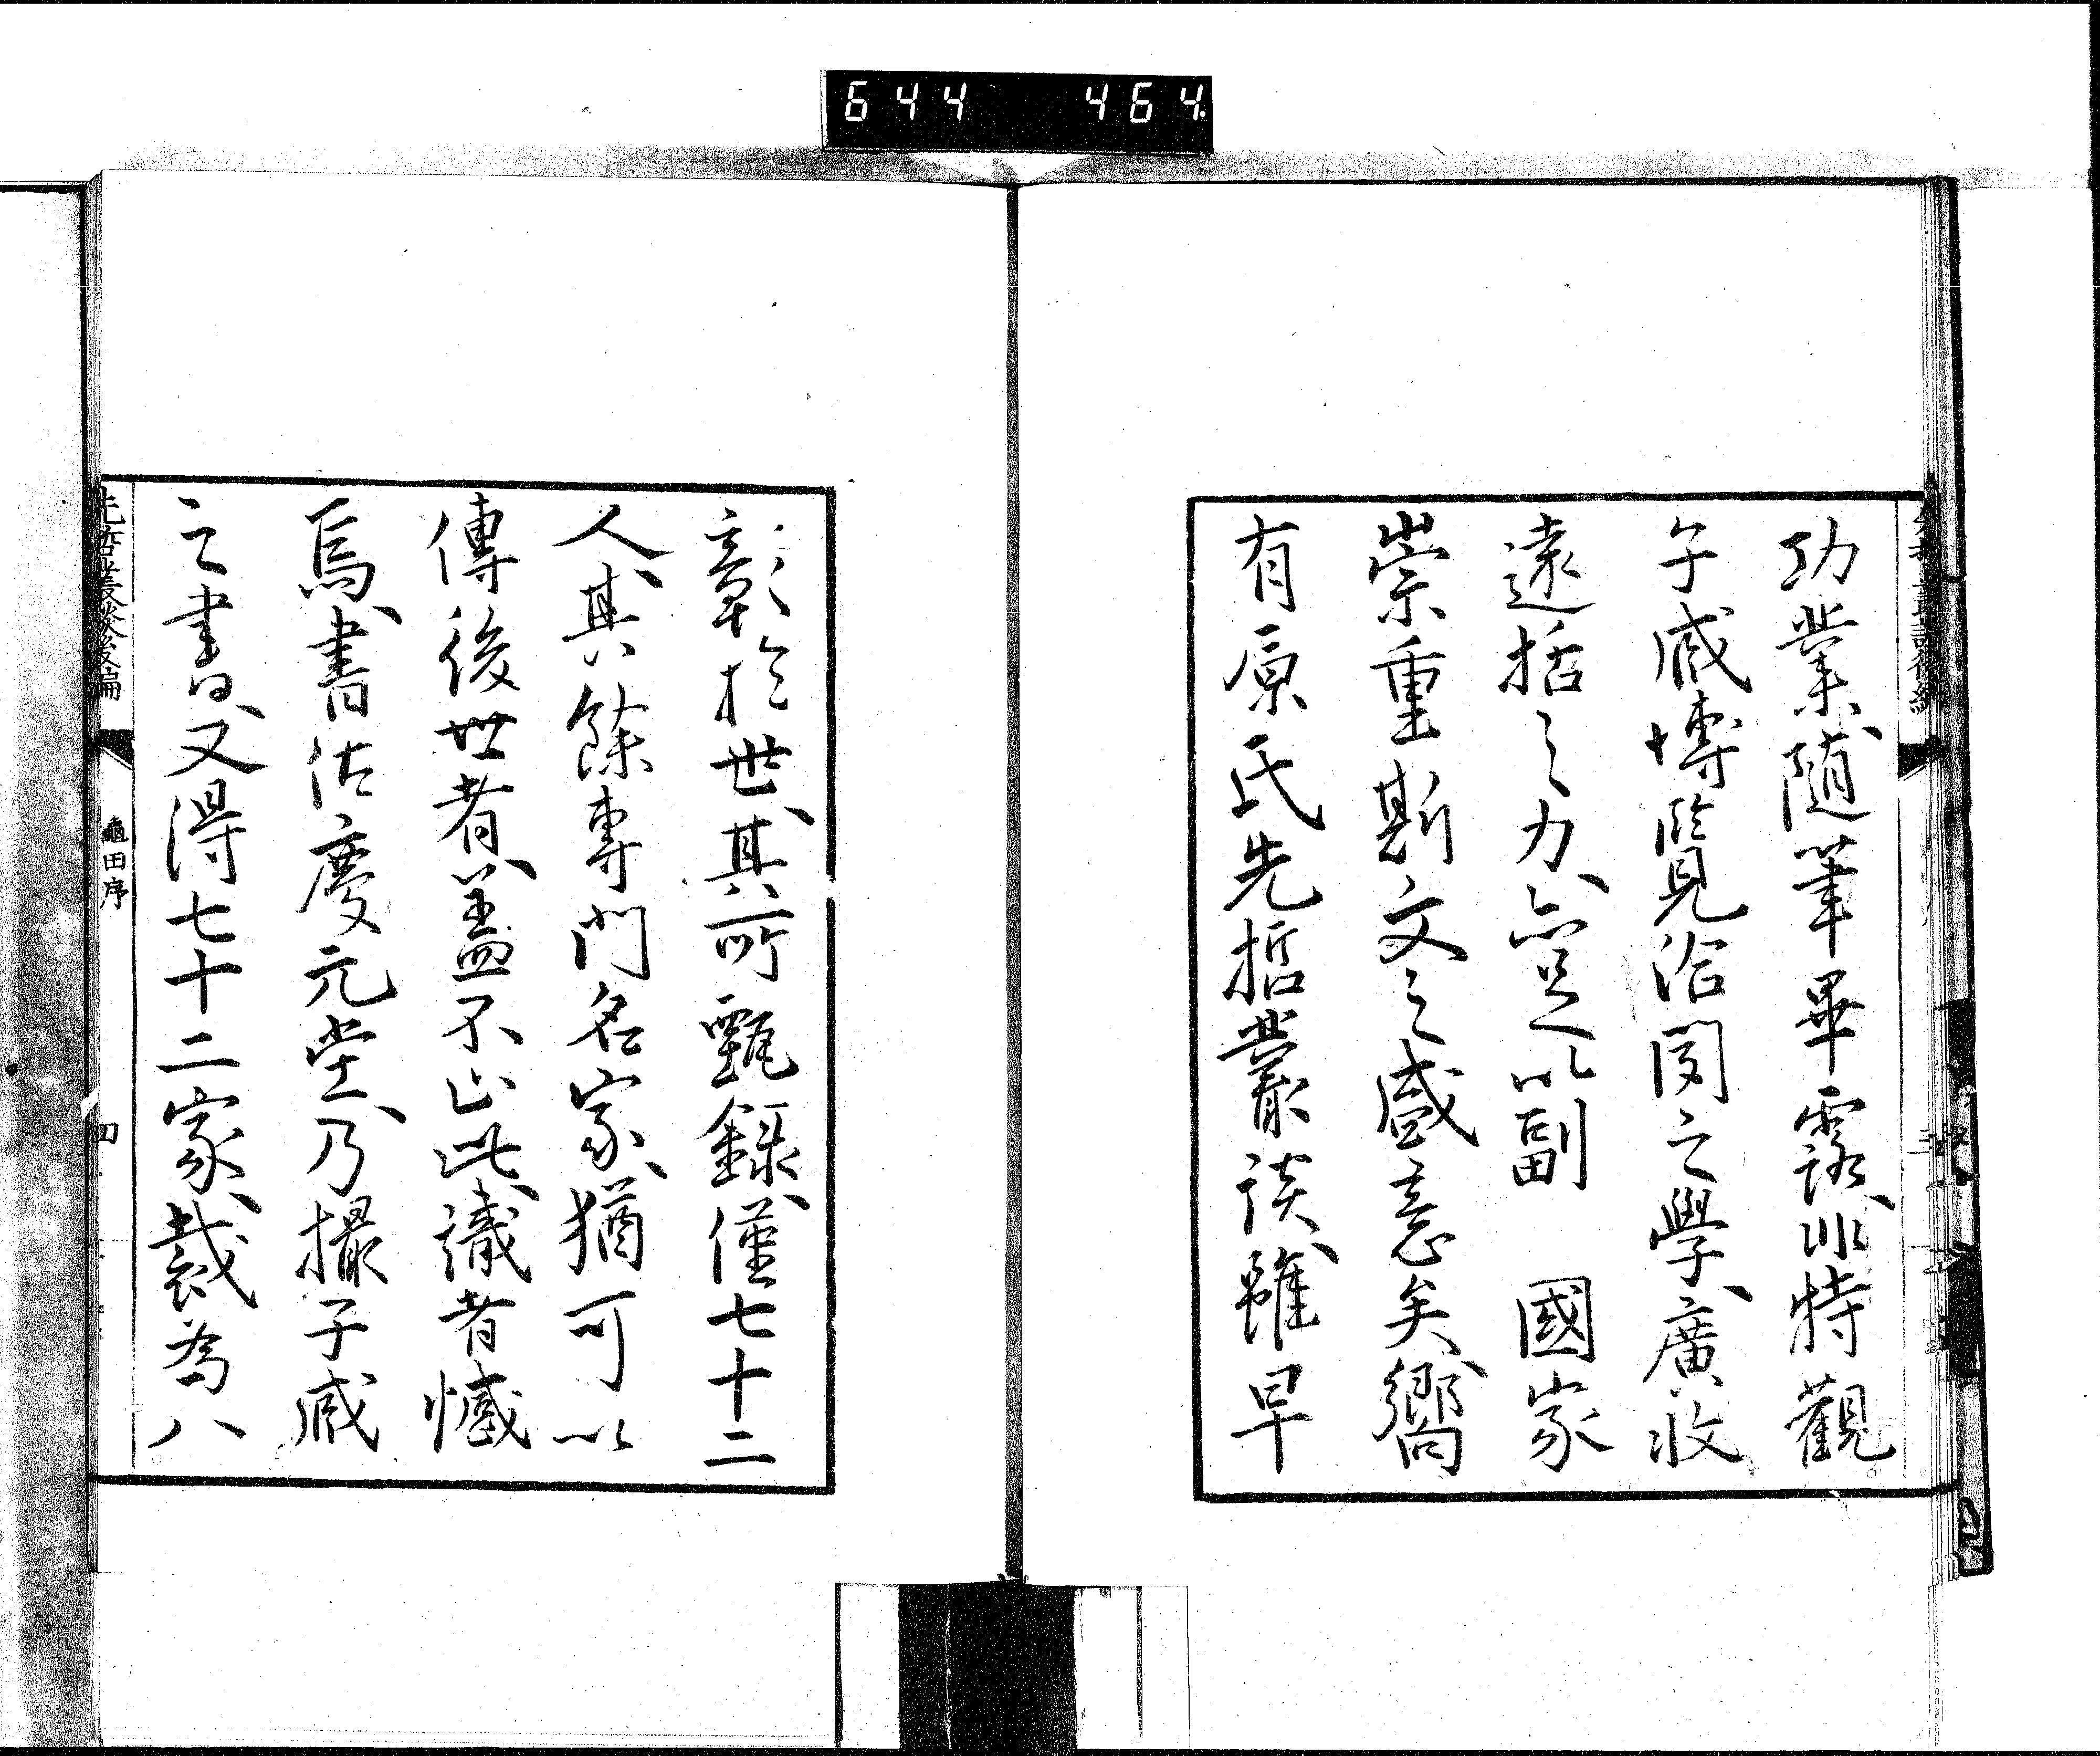 644 464
功業、隨筆畢露、非特觀
子臧博覽洽聞之學、廣收
遠括之力、亦足以副 國家
崇重斯文之盛意矣、嚮
有原氏先哲叢談、雖早
彰於世、其所甄錄、僅七十二
人、其餘專門名家、猶可以
傳後世者、蓋不止此、識者憾
焉、書沽慶元堂、乃撮子臧
之書、又得七十二家、裁為八
先哲叢談後編
龜田序
四